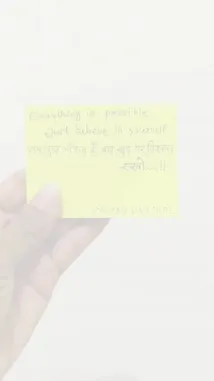 Everything is possible
just believe in yourself
सब कुछ संभव है बस खुद पर विश्वास
रखो....!!